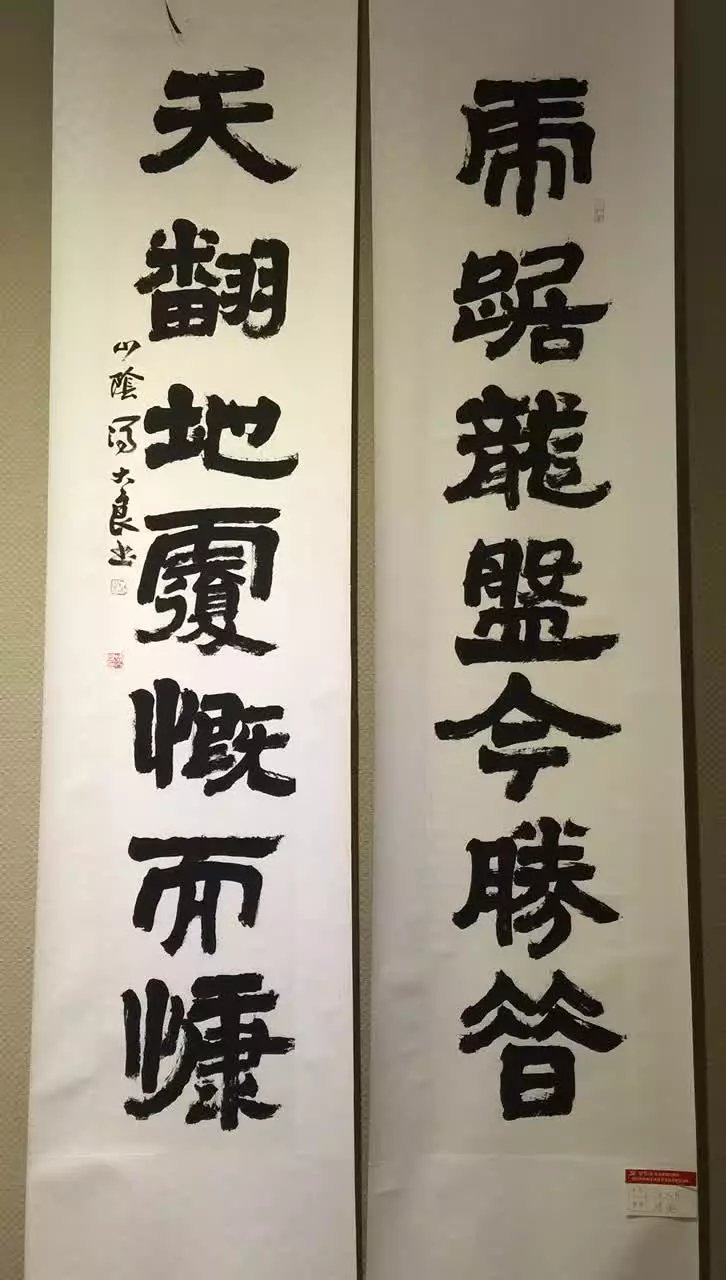 虎踞龍盤今勝昔
天翻地覆慨而慷
山陰馮大良書